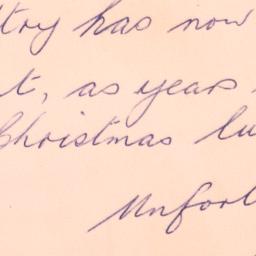 try has now
t, as years
Christmas lu
Unfort